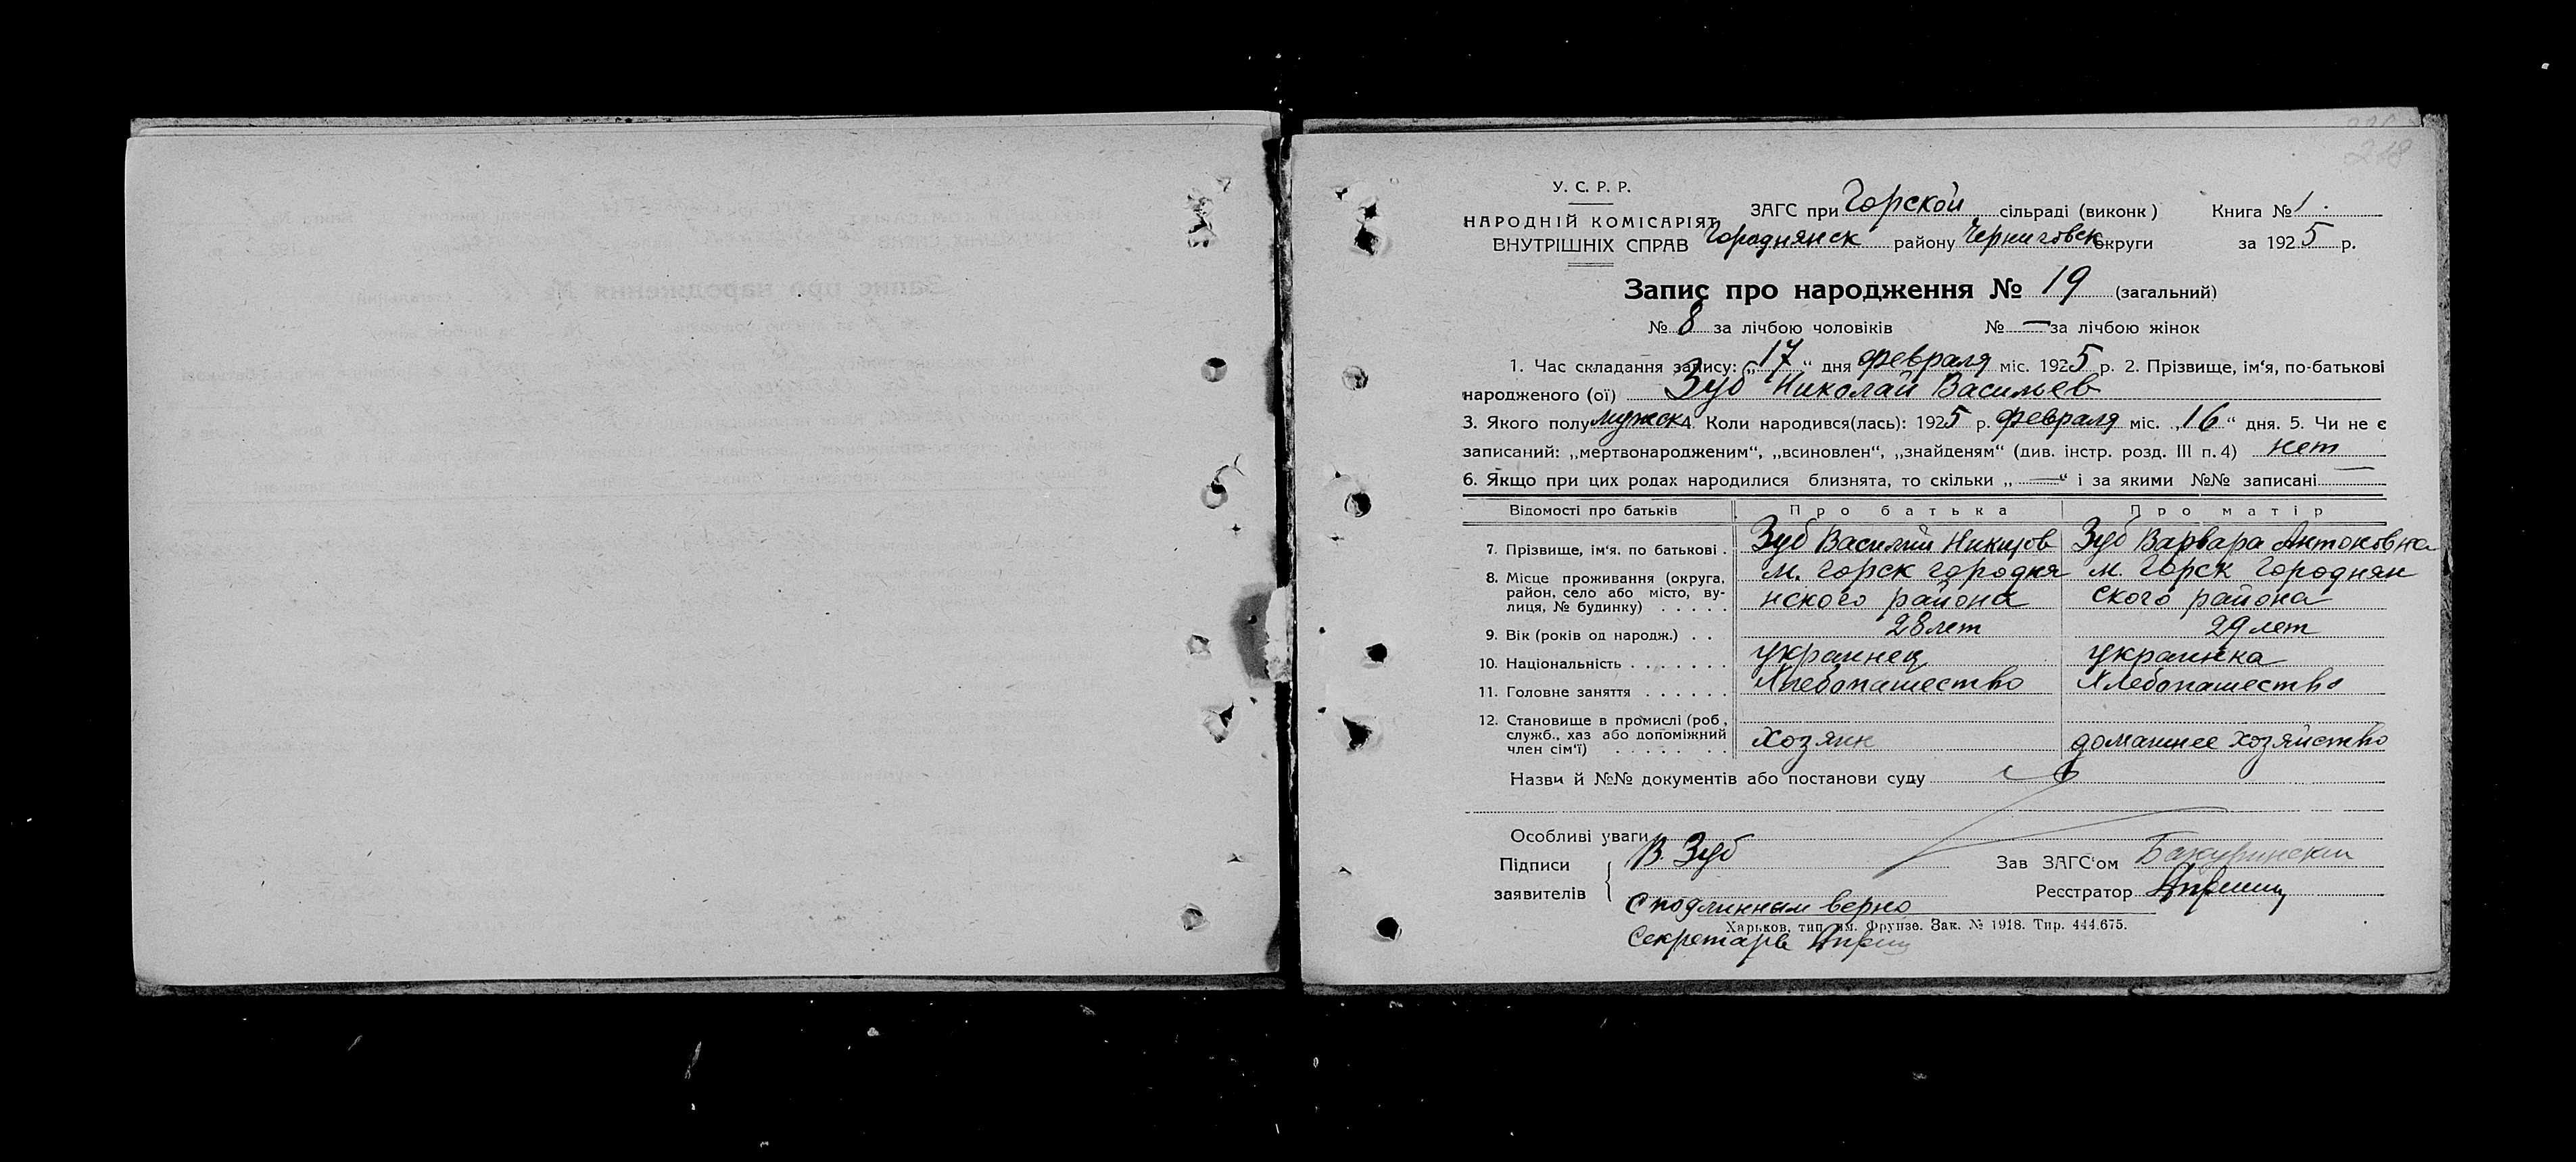 218
У. С. Р. Р.
НАРОДНІЙ КОМІСАРІЯТ
ВНУТРІШНІХ СПРАВ
ЗАГС при Горской сільраді (виконк) Книга № 1.
Городнянск району Черниговск округи за 1925 р.
Запис про народження № 19 (загальний)
№ 8 за лічбою чоловіків № — за лічбою жінок
1. Час складання запису: „17“ дня февраля міс. 1925 р. 2. Прізвище, ім‘я, по-батькові
народженого (ої) Зуб Николай Васильев
3. Якого полу мужск 4. Коли народився(лась): 1925 р. февраля міс. „16“ дня. 5. Чи не є
записаний: „мертвонародженим“, „всиновлен“, „знайденям“ (див. інстр. розд. III п. 4) нет
6. Якщо при цих родах народилися близнята, то скільки „—“ і за якими №№ записані —
Відомості про батьків Про батька Про матір
7. Прізвище, ім‘я. по батькові . Зуб Василий Зуб Варвара Антоновна
8. Місце проживання (округа, район, село або місто, вулиця, № будинку) . . . . . м. Горск Городня м. Горск Городнян
нского района ского района
9. Вік (років од народж.) . . 28 лет 29 лет
10. Національність . . . . . . . украинец украинка
11. Головне заняття . . . . . . Хлебопашество Хлебопашество
12. Становище в промислі (роб, служб., хаз або допоміжний член сім‘ї) . . . . . . . Хозяин домашнее хозяйство
Назви й №№ документів або постанови суду
Особливі уваги
Підписи заявителів { В. Зуб
Зав ЗАГС‘ом
Реєстратор
С подлинным верно
Харьков, тип. им. Фрунзе. Зак. № 1918. Тир. 444.675.
Секретарь